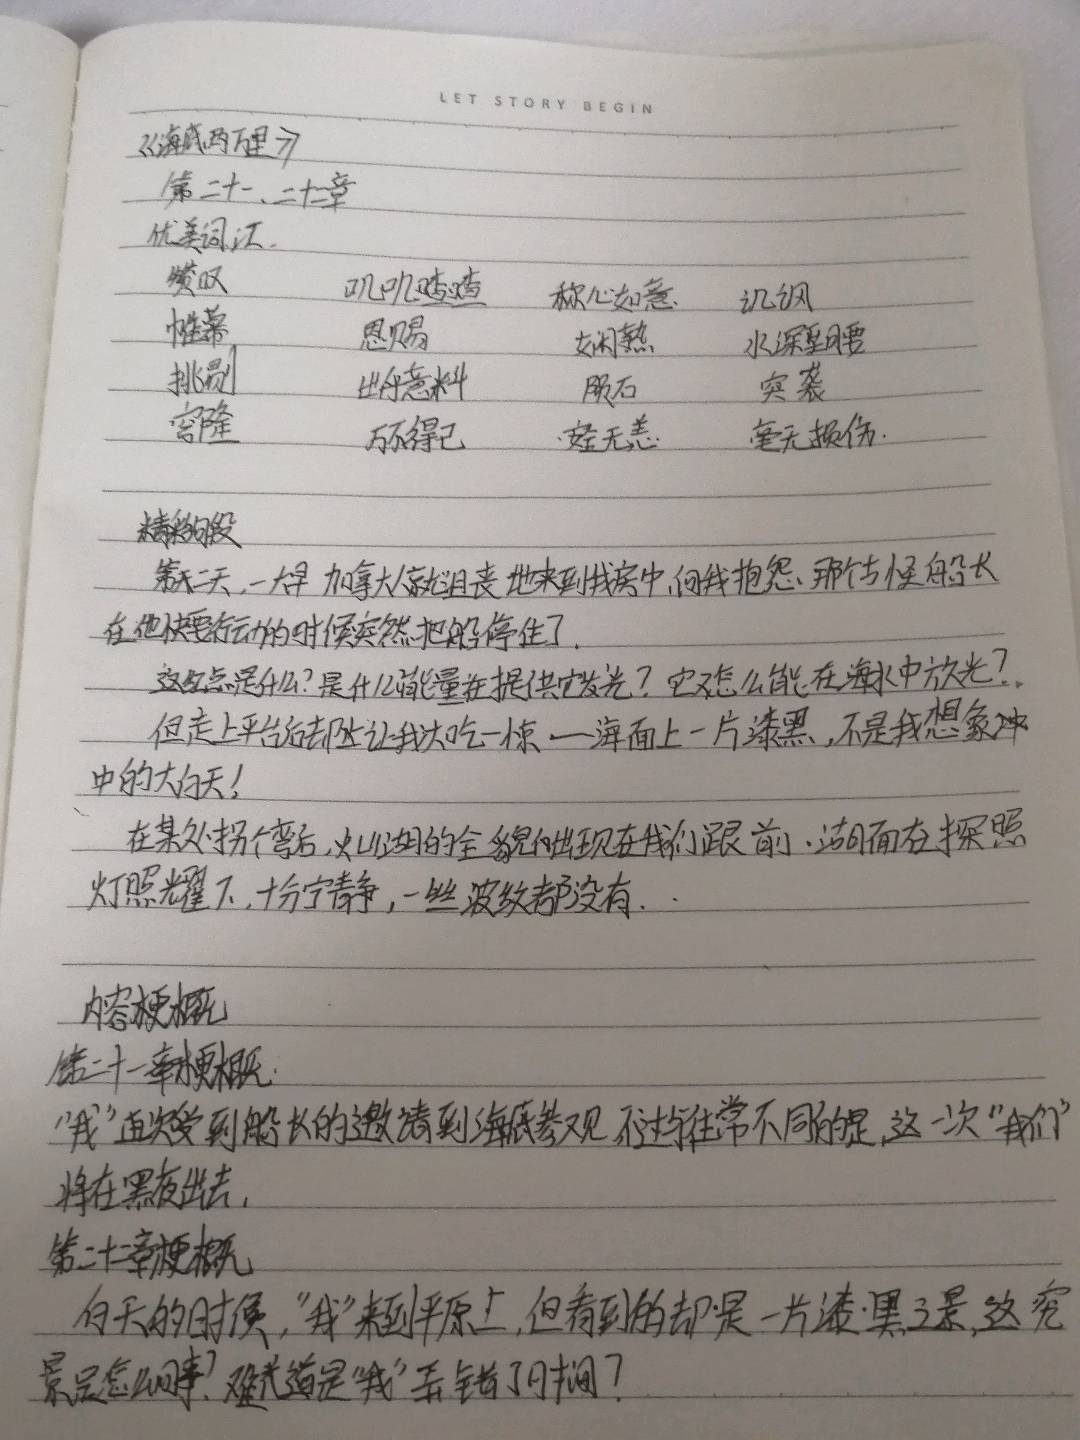 LET STORY BEGIN
《海底两万里》
第二十一、二十二章
优美词汇.
赞叹 叽叽喳喳 称心如意 讥讽
帷幕 恩赐 娴熟 水深至腰
挑剔 出乎意料 陨石 突袭
穹隆 万不得已 安然无恙 毫无损伤.
精彩句段
第二天,一大早 加拿大人就沮丧地来到我房中,向我抱怨、那个古怪船长
在他快要行动的时候突然把船停住了.
这些点是什么?是什么能量在提供它发光?它又怎么能在海水中放光?
但走上平台后却让我大吃一惊——海面上一片漆黑,不是我想象
中的大白天!
在某处拐个弯后,火山湖的全貌出现在我们跟前.湖面在探照
灯照耀下,十分宁静,一丝波纹都没有.
内容梗概
第二十一章梗概.
"我"再次受到船长的邀请到海底参观 不过与往常不同的是,这一次"我们"
将在黑夜出去,
第二十二章梗概
白天的时候,"我"来到平原上,但看到的却是一片漆黑之景,这究
竟是怎么回事?难道是"我"弄错了时间?